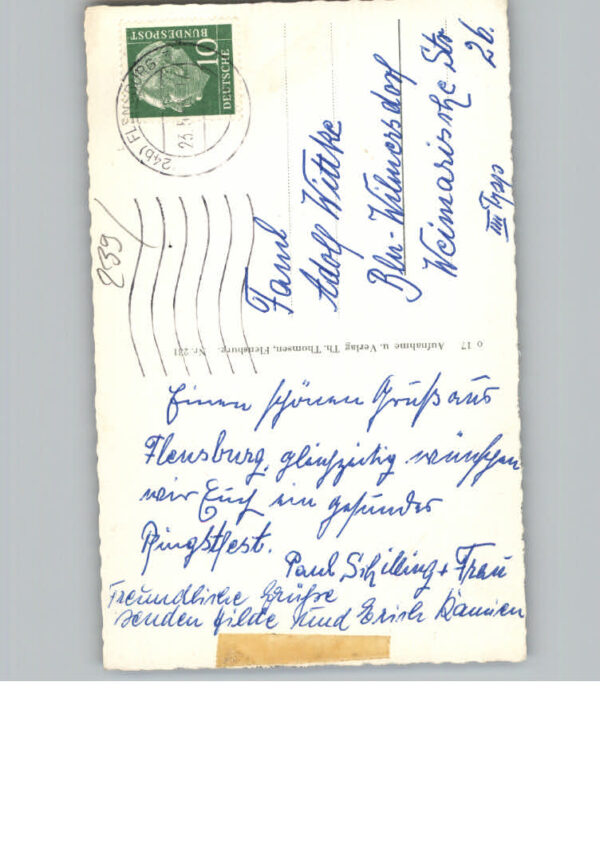 DEUTSCHE
BUNDESPOST
10
(24b) FLENSBURG
239
Faml
Adolf Wittke
Bln-Wilmersdorf
Weimarische Str
26.
III Trpp
o 17 Aufnahme u. Verlag Th. Thomsen, Flensburg. Nr. 221
Einen schönen Gruß aus
Flensburg, gleichzeitig wünschen
wir Euch ein gesundes
Pingstfest.
Paul Schilling + Frau
Freundliche Grüße
senden Hilde und Erich